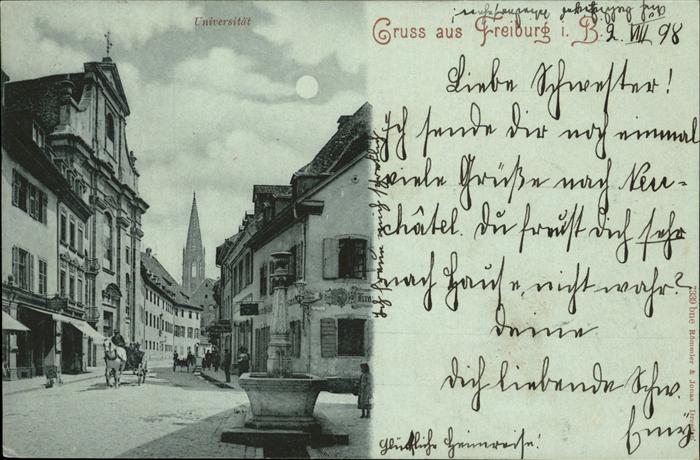 Universität
Gruss aus Freiburg i. B.
9. VIII 98
Liebe Schwester!
Ich sende Dir noch einmal
viele Grüße nach Neu-
châtel. Du freust Dich sehr
nach Hause, nicht wahr?
Deine
Dich liebende Schw.
Emy
Glückliche Heimreise!
7339 bnc Römmler & Jonas Dresden